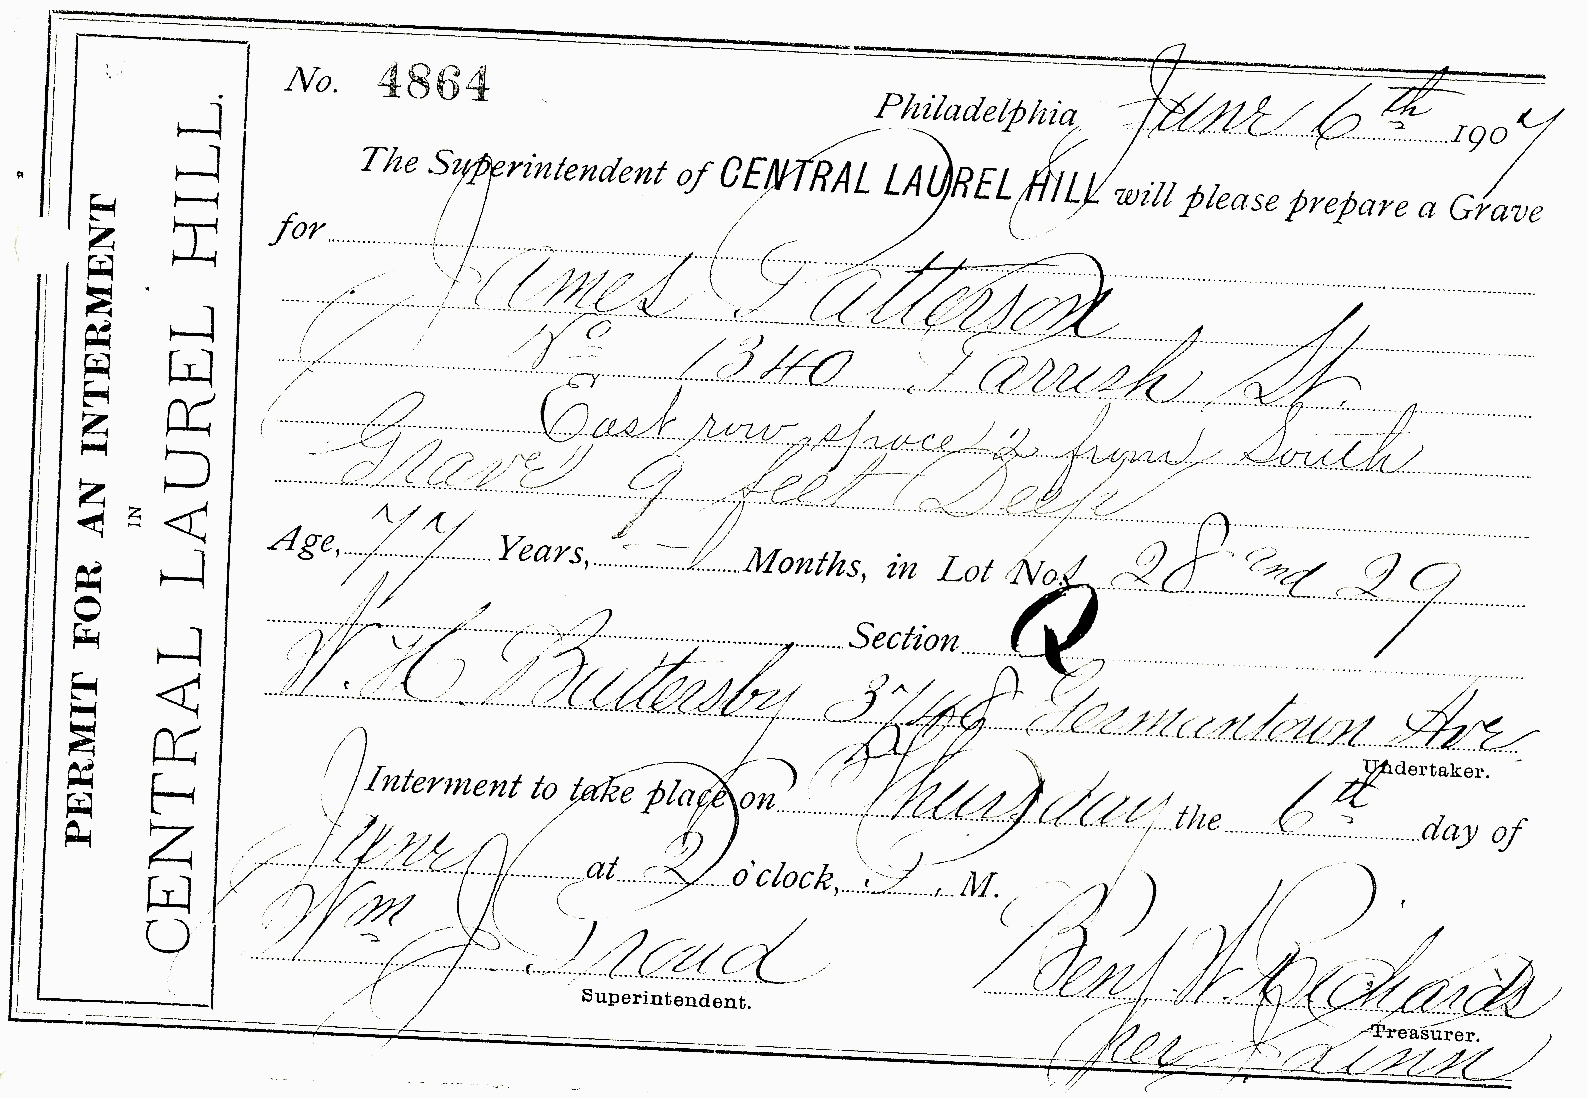 PERMIT FOR AN INTERMENT
IN
CENTRAL LAUREL HILL.
No. 4864
Philadelphia June 6th 1907
The Superintendent of CENTRAL LAUREL HILL will please prepare a Grave
for
James Patterson
No 1340 Parrish St.
East row space 2 from South
Grave 9 feet Deep
Age, 77 Years, — Months, in Lot Nos 28 and 29
Section Q
W. H. Battersby 3748 Germantown Ave
Undertaker.
Interment to take place on Thursday the 6th day of
June at 2 o'clock, P. M.
Wm J. Proud
Superintendent.
Benj. W. Richards
Treasurer.
per Linn